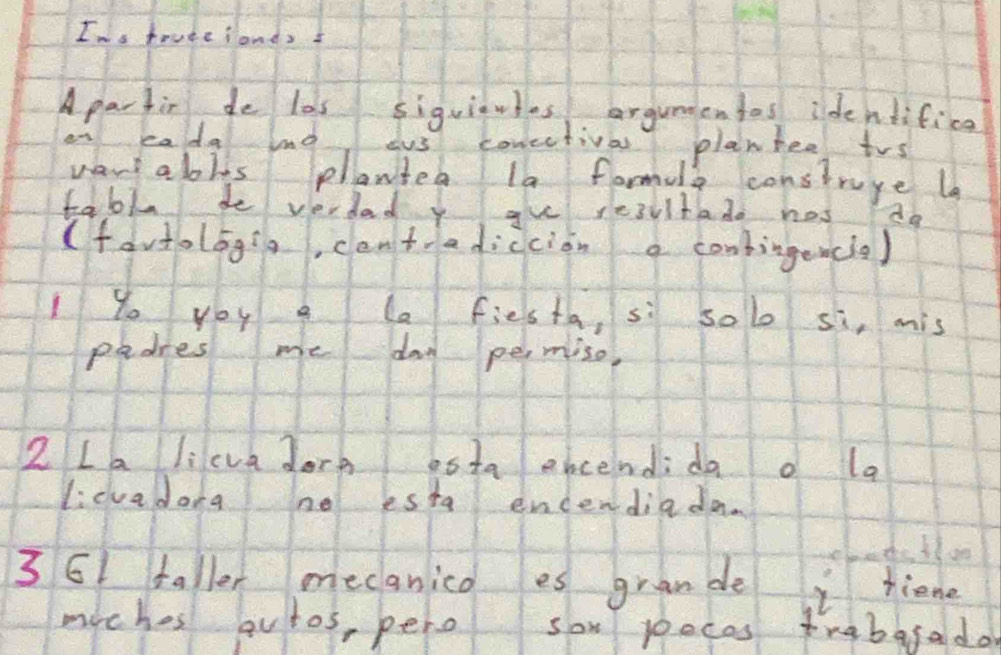 Instrucciones:
Apartir de los siguientes argumentos identifica
en cada uno sus conectivas plantea tus
variables plantea la formula construye la
tabla de verdad y que resultado nos da
(tautológia, contradicción o contingencia)
1 Yo voy a la fiesta, si solo si, mis
padres me dan permiso.
2 La licuadora esta encendida o la
licuadora no esta encendiada.
3 El taller mecanico es grande y tiene
muchos autos, pero son pocos trabajador